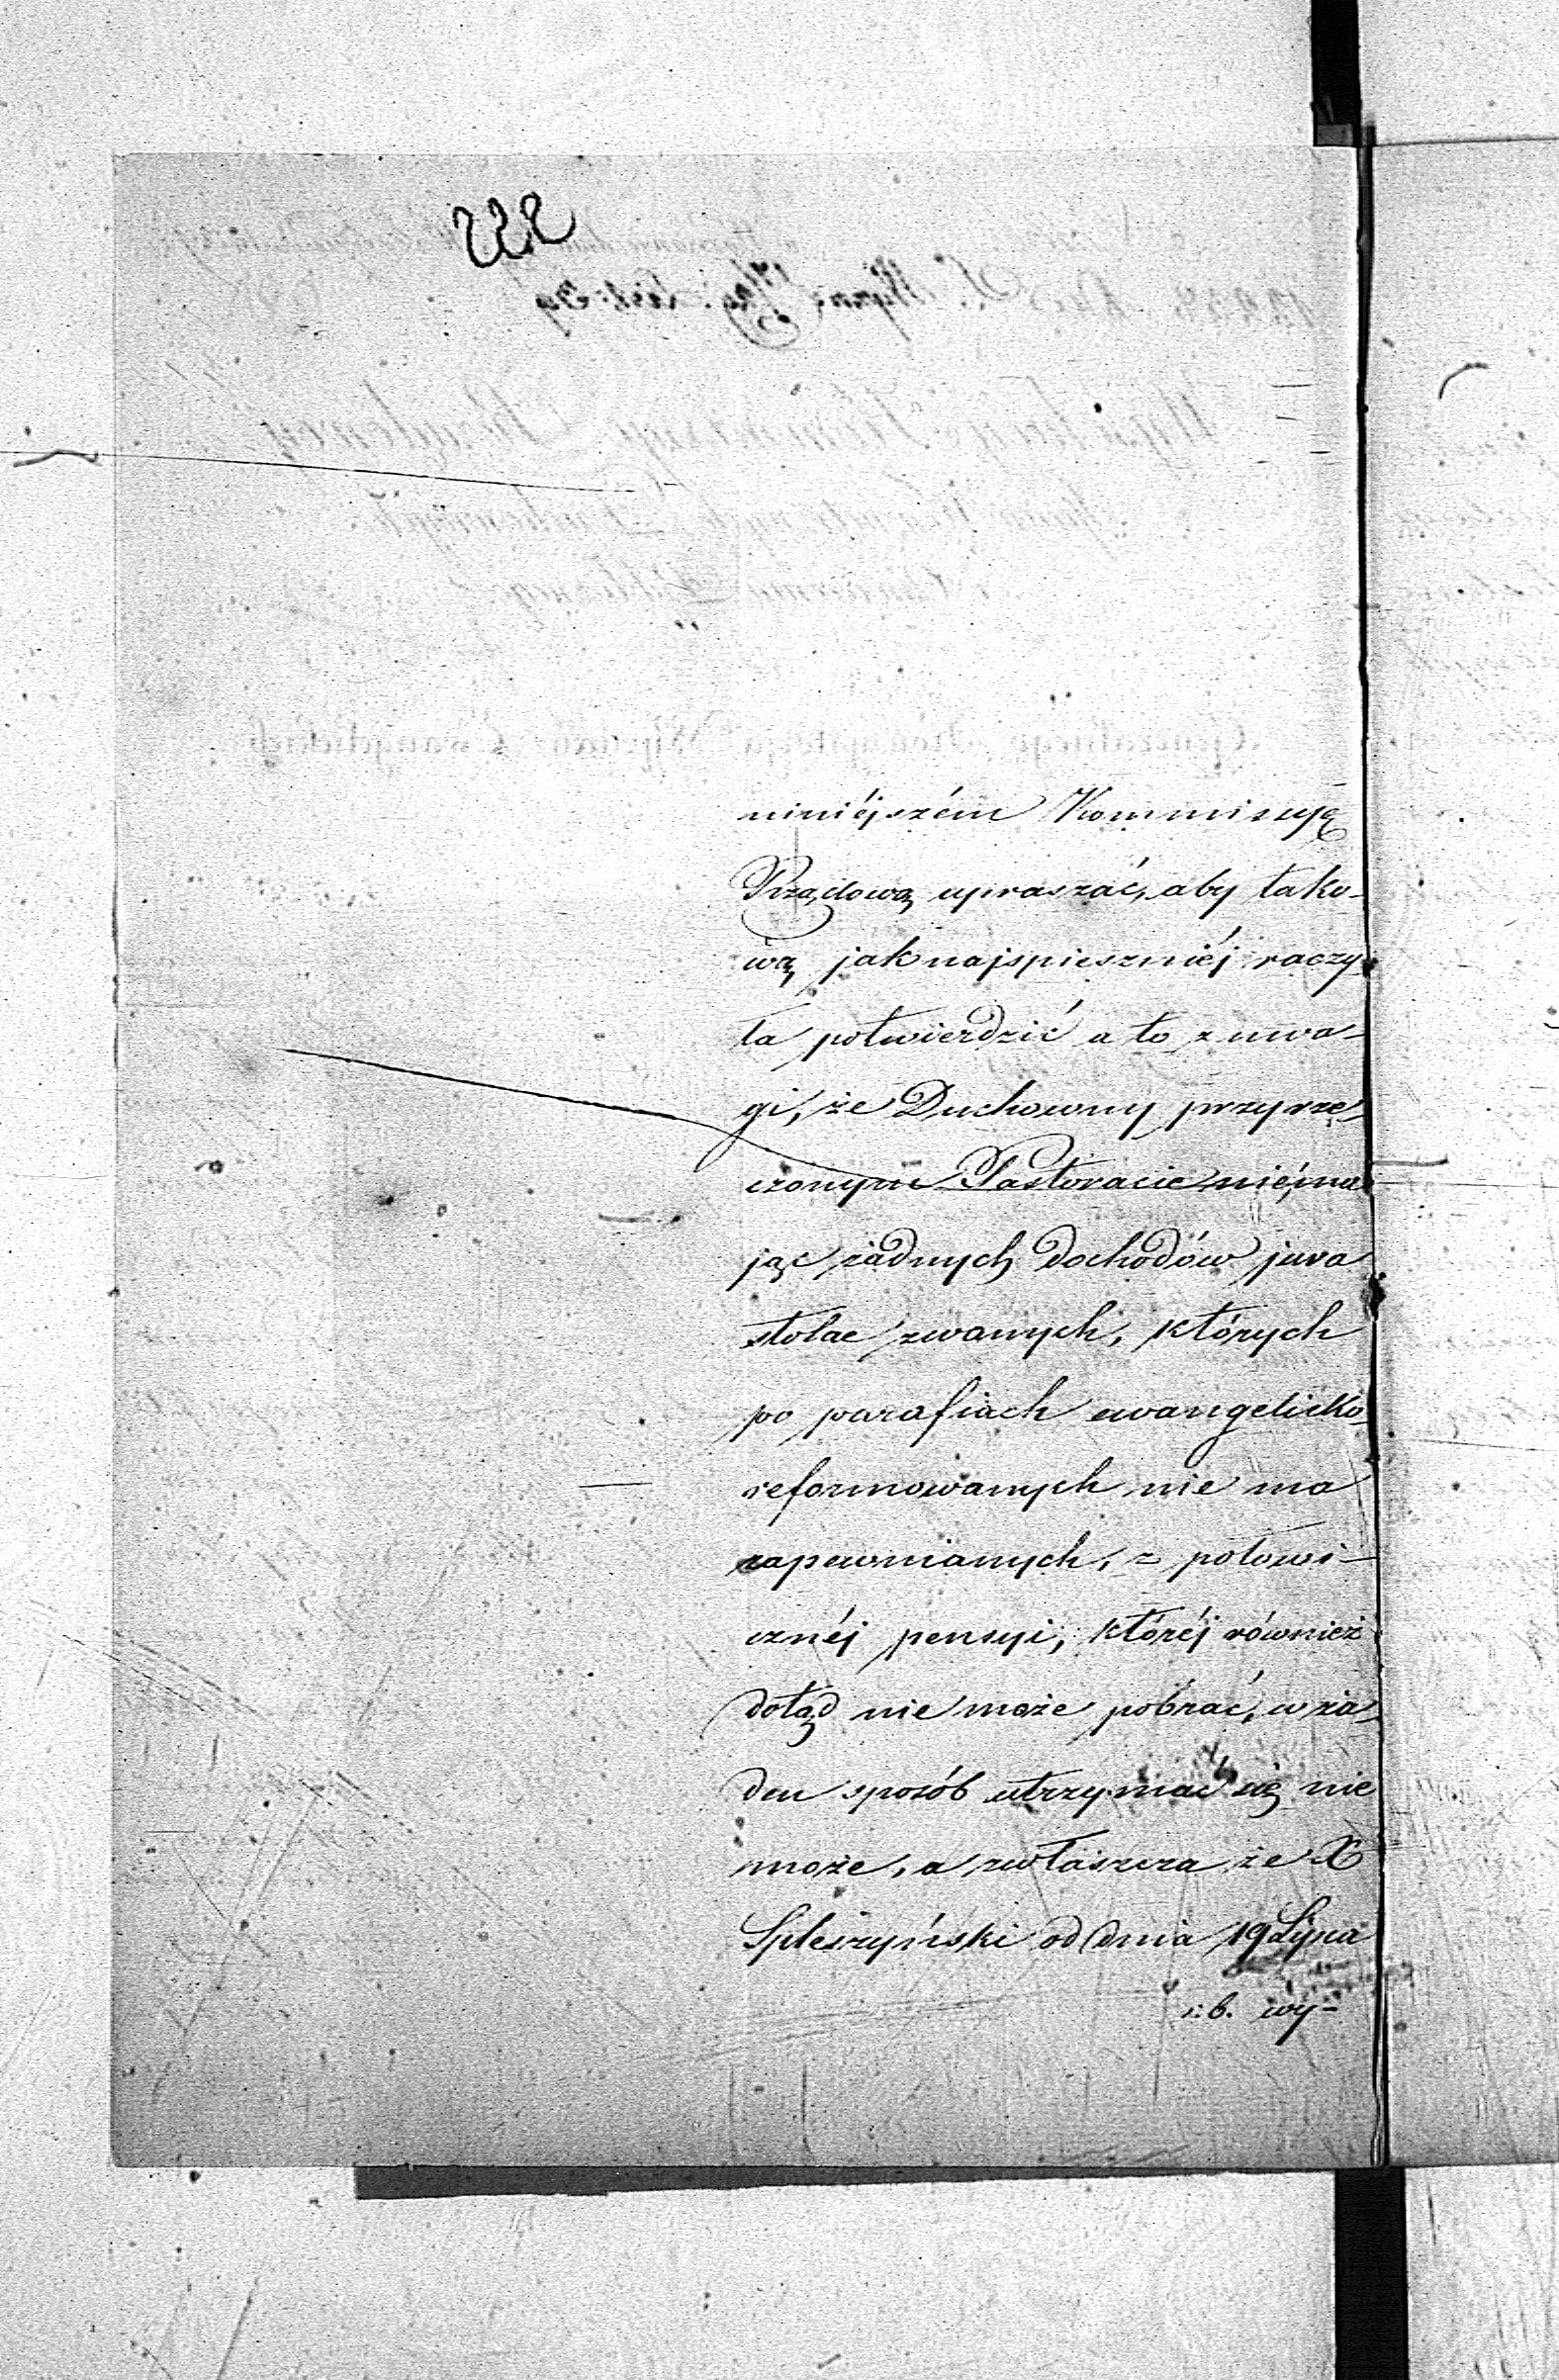 niniéjszém Kommissyę
Rządową upraszać, aby tako-
wą jaknajspieszniéj raczy-
ła potwierdzić a to z uwa-
gi, że Duchowny przy rze-
czonym Pastoracie niéma-
jąc żadnych dochodów jura
stolae zwanych, których
po parafiach ewangelicko
reformowanych nie ma
zapewnianych, z połowi-
cznéj pensyi, któréj również
dotąd nie może pobrać, w ża-
den sposób utrzymać się nie
może, a zwłaszcza że X
Spleszyński od dnia 19 Lipca
r. b. wy-